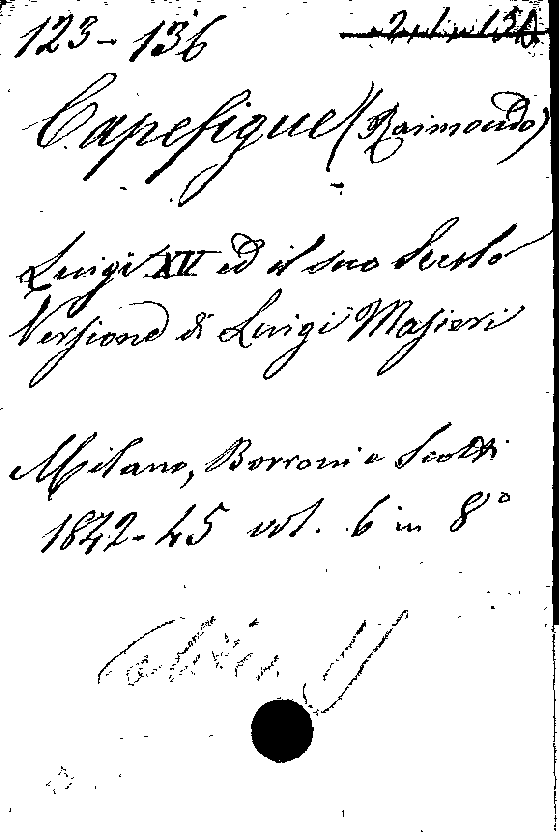 123-136
Capefigue (Raimondo)
Luigi XIV ed il suo Secolo
Versione di Luigi Masieri
Milano, Borroni e Scotti
1842-45 vol. 6 in 8°